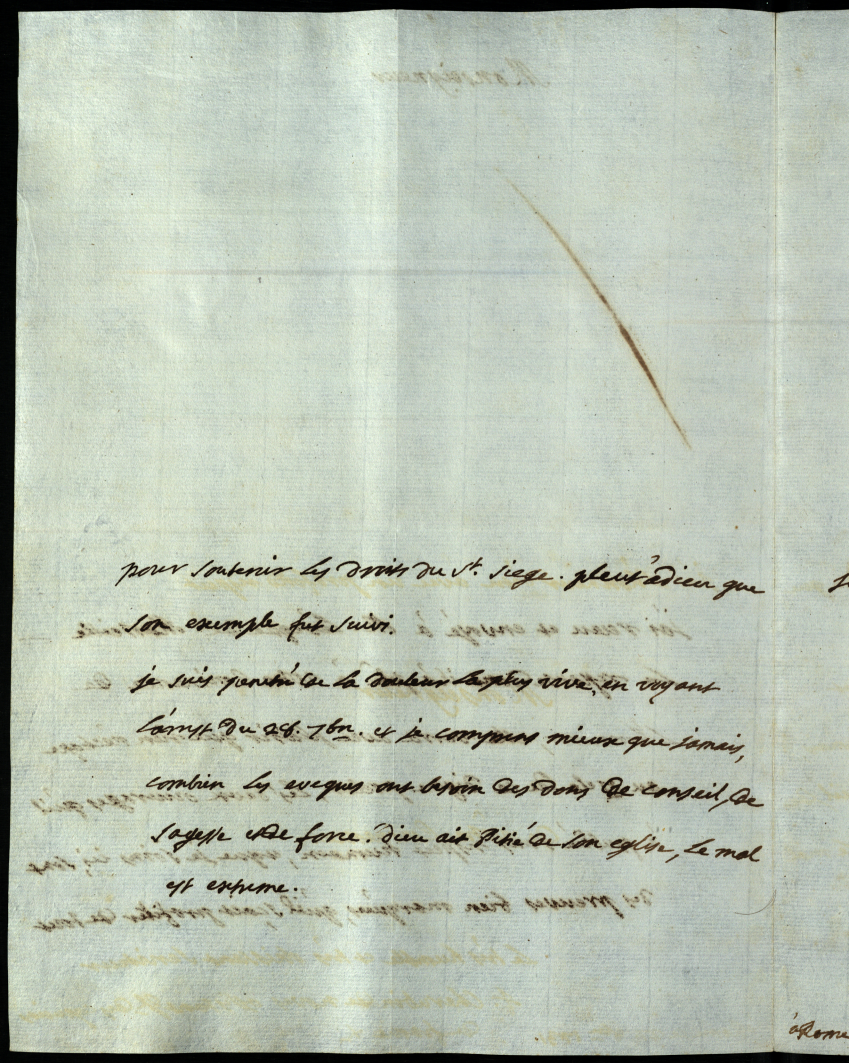 pour soutenir les droits du St. siege. pleut'adieu que
son exemple fut suivi.
je suis penetré de la douleur la plus vive, en voyant
l'arrest du 28. 7bre. et je comprens mieux que jamais,
combien les eveques ont besoin des dons de conseil, de
sagesse et de force. dieu ait pitié de son eglise, le mal
est extreme.
à Rome